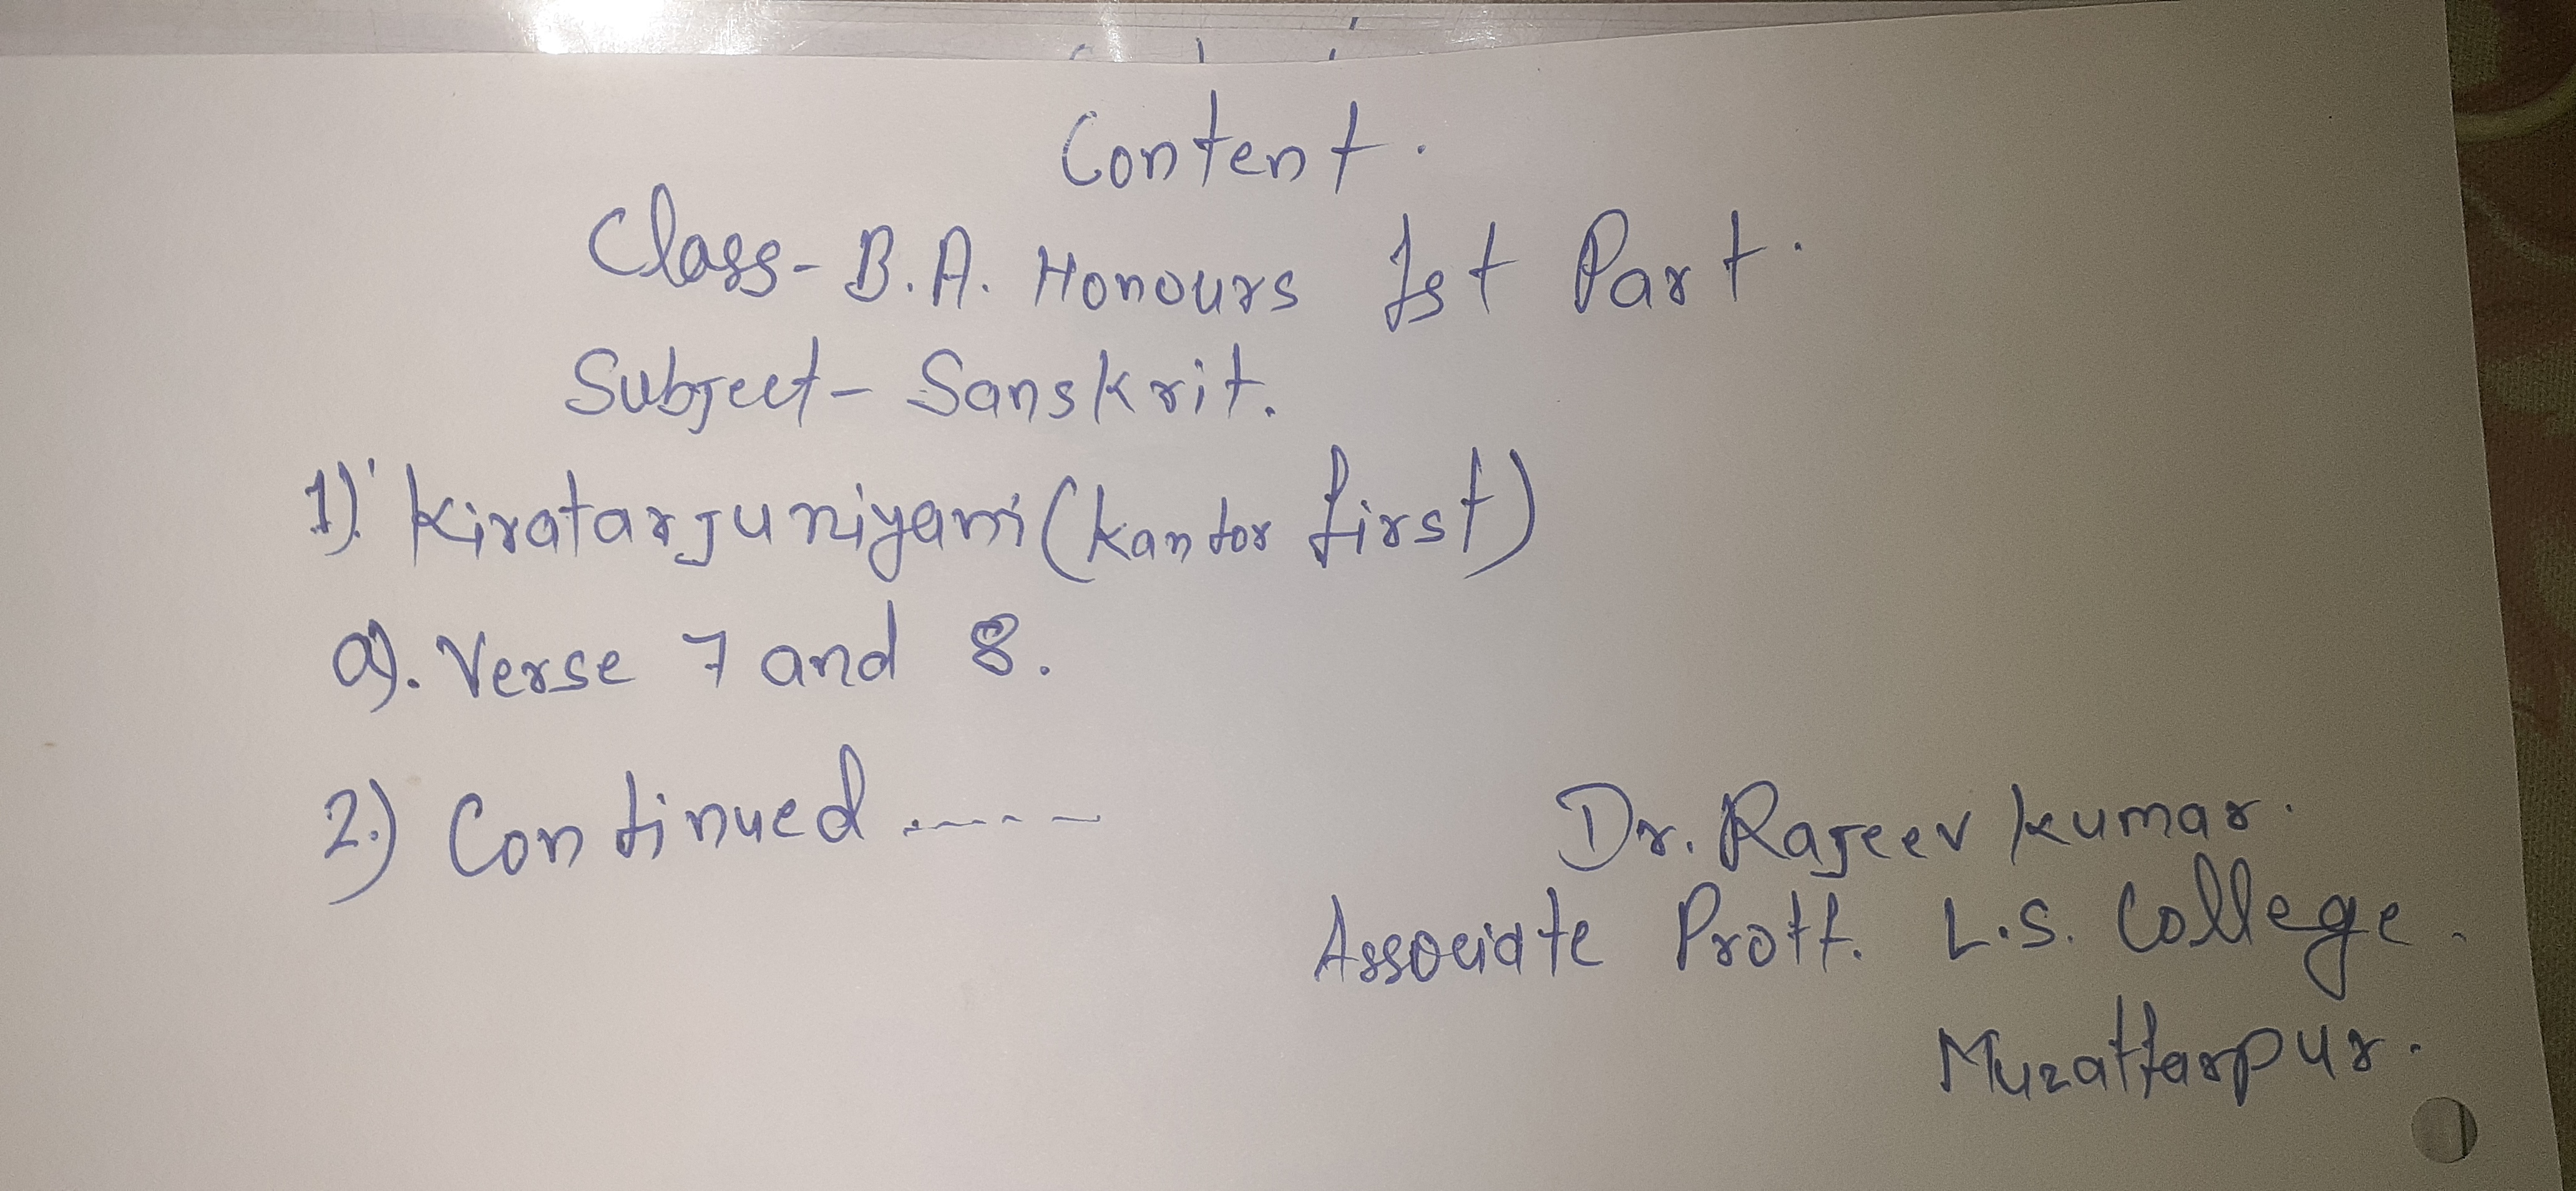 Content.
Class- B.A. Honours Ist Part.
Subject- Sanskrit.
1). Kiratarjuniyam (Kantor first)
a). Verse 7 and 8.
2.) Continued .-----
Dr. Rajeev Kumar.
Associate Proff. L.S. College.
Muzaffarpur.